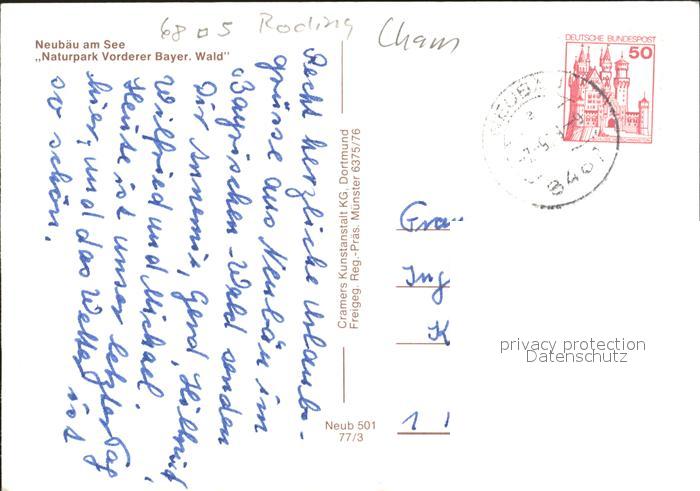 6805 Roding Cham
Neubäu am See
„Naturpark Vorderer Bayer. Wald"
DEUTSCHE BUNDESPOST
50
8401
Recht herzliche Urlaubs-
grüsse aus Neubäu im
Bayrischen-Wald senden
Dir Annemie, Gerd, Hiltrud
Wilfried und Michael.
Heute ist unser letzter Tag
hier, und das Wetter ist
so schön.
Cramers Kunstanstalt KG, Dortmund
Freigeg. Reg.-Präs. Münster 6375/76
Neub 501
77/3
Ing
K
1
privacy protection
Datenschutz